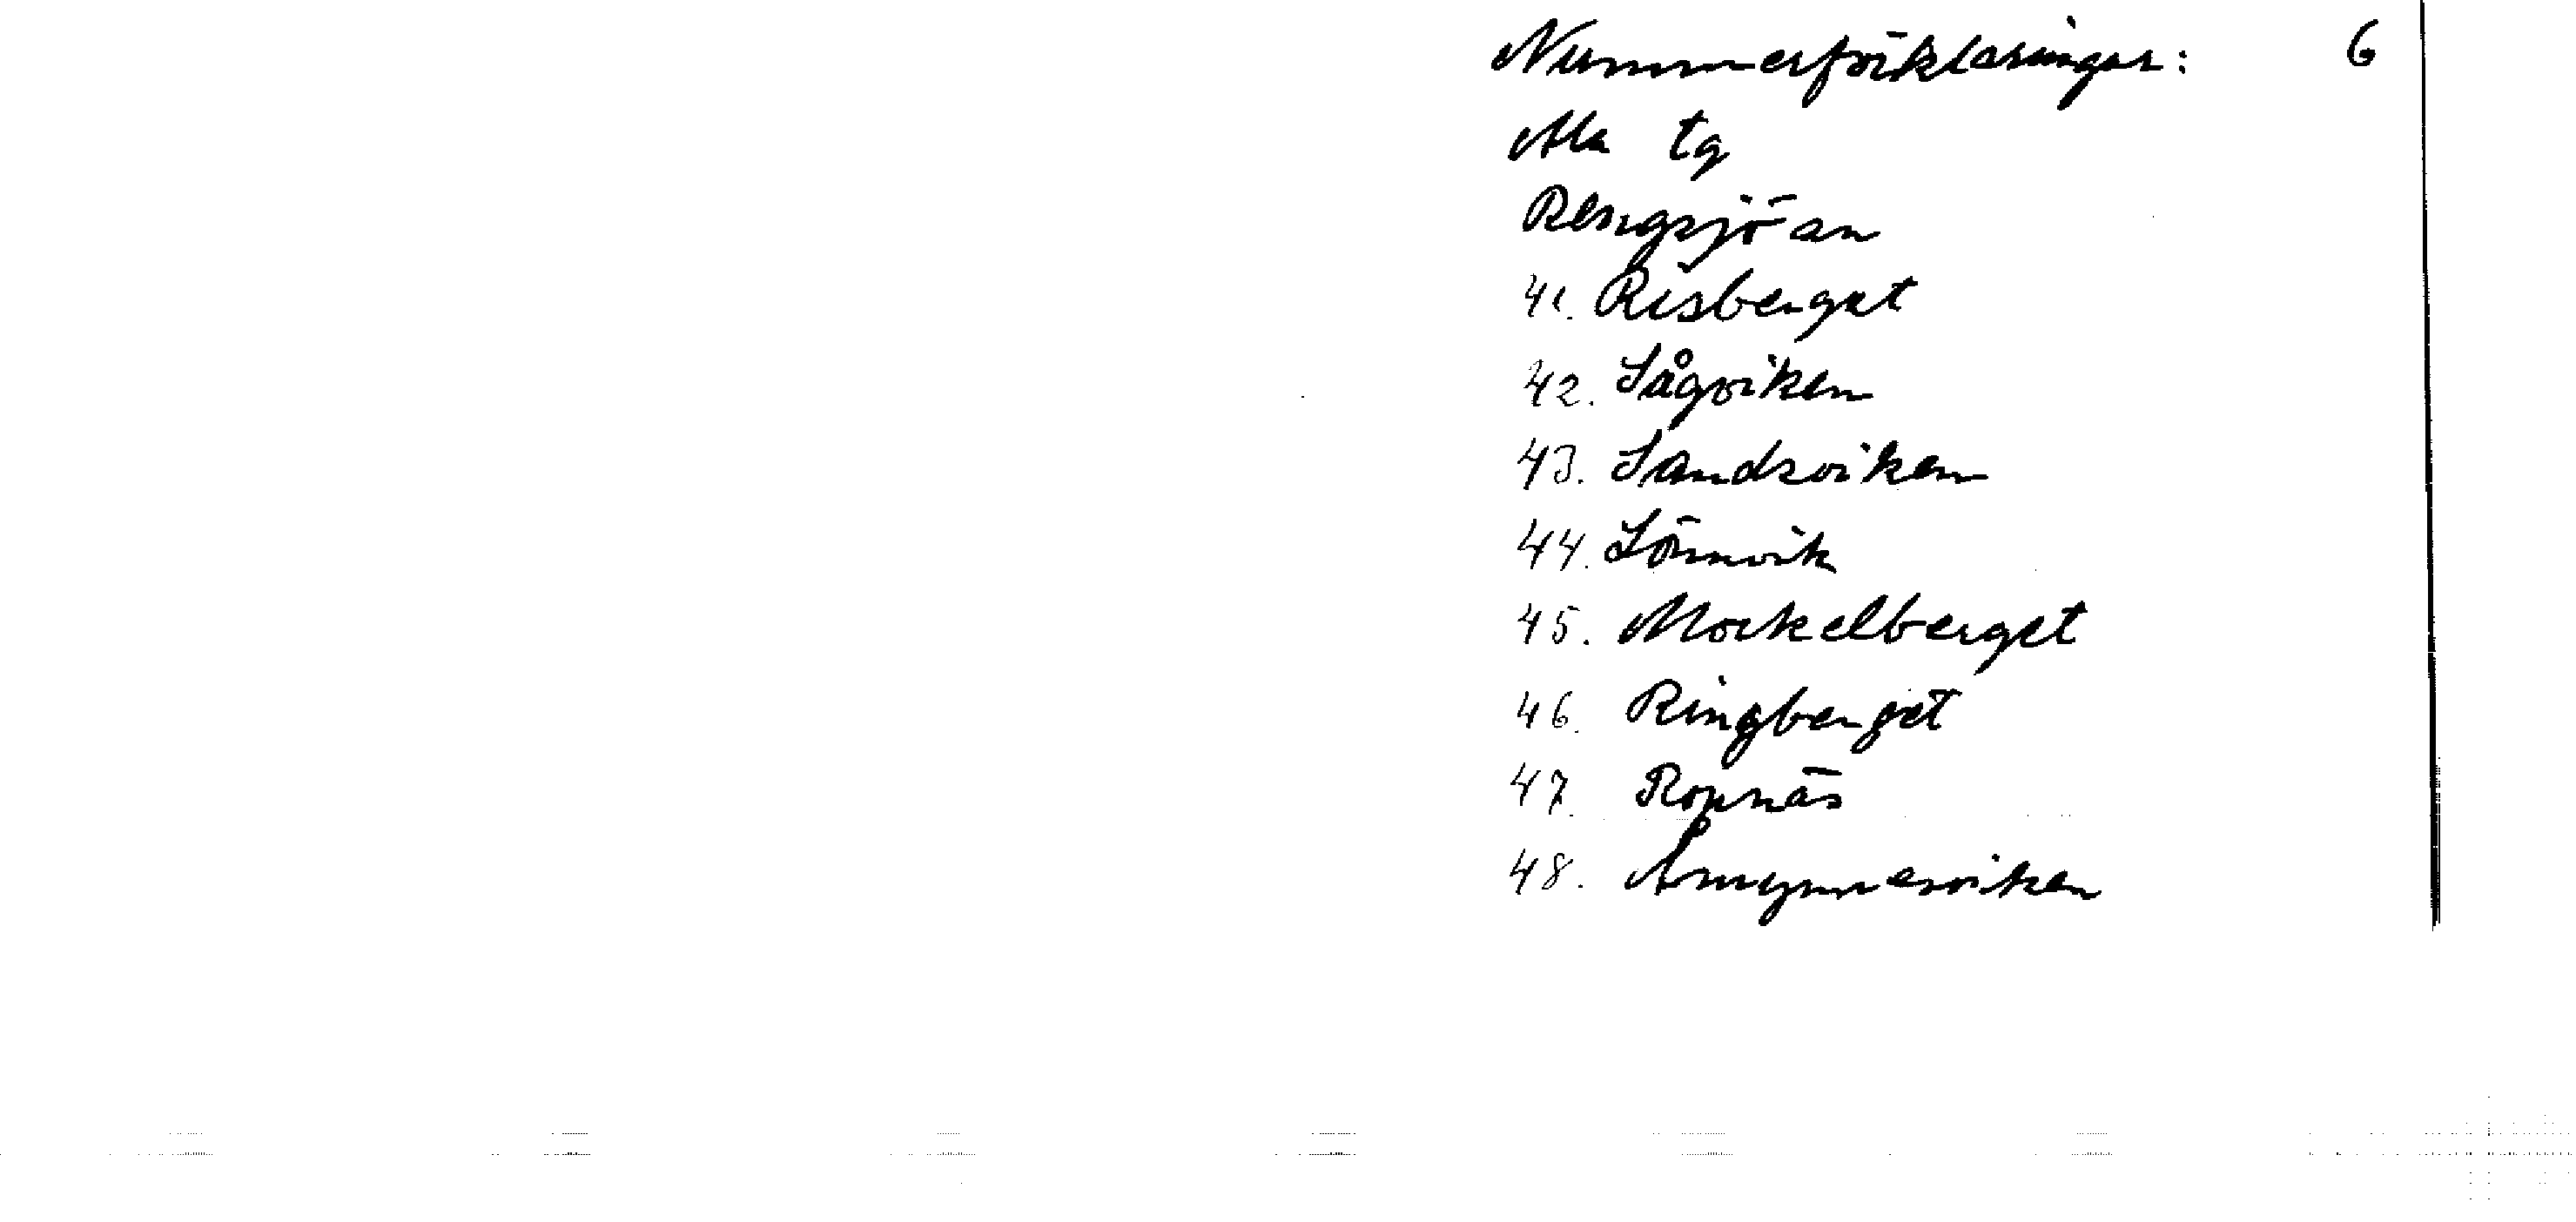 Nummerförklaringar: 6
Ala tg
Rengsjöan
41. Risberget
42. Sågviken
43. Sandsviken
44. Lönnvik
45. Morkelberget
46. Ringberget
47. Ropnäs
48. Åmynnesviken